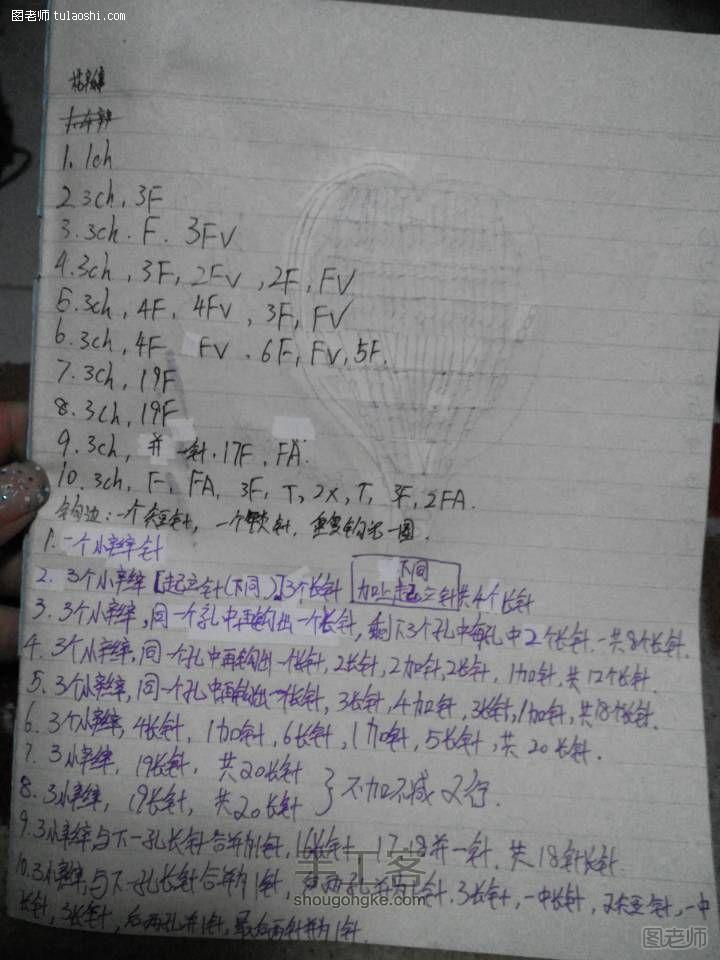 图老师 tulaoshi.com
1. 1ch
2 3ch, 3F
3. 3ch. F. 3FV
4. 3ch, 3F, 2FV, 2F, FV
5. 3ch, 4F, 4FV, 3F, FV
6. 3ch, 4F FV. 6F, FV, 5F.
7. 3ch, 19F
8. 3ch, 19F
9. 3ch, 并一针. 17F, FA.
10. 3ch, F, FA, 3F, T, 2X, T, 3F, 2FA.
钩边: 一个短针, 一个针, 重复钩一圈.
1. 一个小辫针
2. 3个小辫【起立针(下同)】3个长针 下同 加上起立针共4个长针
3. 3个小辫, 同一个孔中再钩出一个长针, 剩下3个孔中每孔中2个长针. 一共8个长针.
4. 3个小辫, 同一个孔中再钩出一个长针, 2长针, 2加针, 2长针, 1加针, 共12个长针.
5. 3个小辫, 同一个孔中再钩出一个长针, 3长针, 4加针, 3长针, 1加针, 共18个长针.
6. 3个小辫, 4长针, 1加针, 6长针, 1加针, 5长针, 共20长针.
7. 3小辫, 19长针, 共20长针
8. 3小辫, 19长针, 共20长针 } 不加不减2行.
9. 3小辫, 与下一孔长针合并为1针, 16长针, 17.18并一针. 共18针长针
10. 3小辫, 与下一孔长针合并为1针, 后两孔并为1针, 3长针, 一中长针, 2短针, 一中
长针, 3长针, 后两孔并1针, 最后两针并为1针.
手工客
shougongke.com
图老师